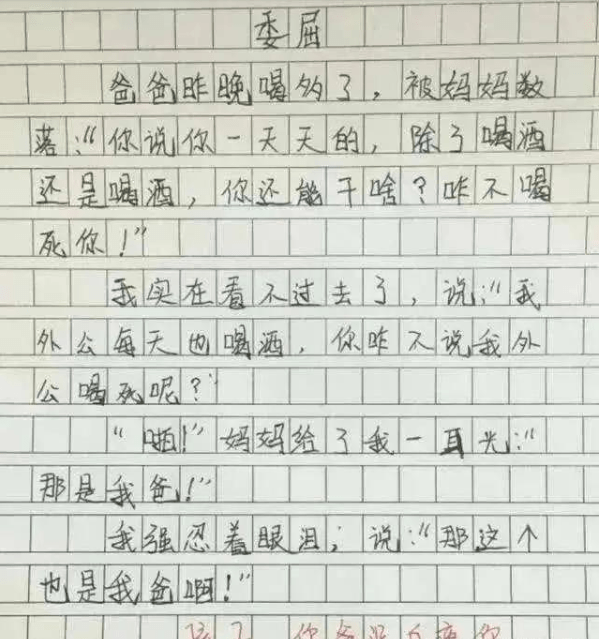 委屈
爸爸昨晚喝多了，被妈妈数
落："你说你一天天的，除了喝酒
还是喝酒，你还能干啥？咋不喝
死你！"
我实在看不过去了，说："我
外公每天也喝酒，你咋不说我外
公喝死呢？"
"啪！"妈妈给了我一耳光："
那是我爸！"
我强忍着眼泪；说："那这个
也是我爸啊！"